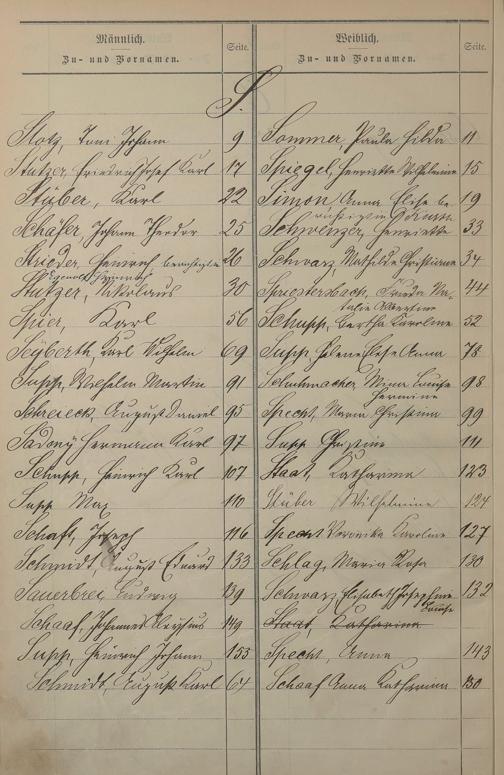 Männlich.
Zu- und Vornamen.
Seite.
Weiblich.
Zu- und Vornamen.
Seite.
S.
Stotz, Toni Johann 9
Stutzer Friedrich Josef Karl 17
Stüber, Karl 22
Schäfer, Johann Theodor 25
Strieder, Heinrich 26
Stutzer, Nikolaus 30
Spier, Karl 56
Seyberth, Karl Wilhelm 69
Supp, Wilhelm Martin 91
Schreieck, August Daniel 95
Sadony Hermann Karl 97
Schupp, Heinrich Karl 107
Supp Max 110
Schaft, Joseph 116
Schmidt, August Eduard 133
Sauerbrey Ludwig 139
Schaaf, Johannes Aloysius 149
Supp, Heinrich Johann 155
Schmidt, August Karl 64
Sommer, Paula Hilda 11
Spiegel, Henriette Wilhelmine 15
Simon, Anna Elise 19
Schwenzer, Henriette 33
Schwarz, Mathilde Christiane 34
Spriestersbach, Frieda Na- 44
talie Albertine
Schupp, Bertha Karoline 52
Supp, Helene Elise Anna 78
Schuhmacher Mina Luise 98
Hermine
Specht, Maria Christina 99
Supp Christine 111
Staat, Katharina 123
Stüber Wilhelmine 124
Specht Veronika Karoline 127
Schlag, Maria Rosa 130
Schwarz Elisabeth Josephine 132
Luise
Staat, Katharina
Specht, Anna 143
Schaaf Anna Katharina 150